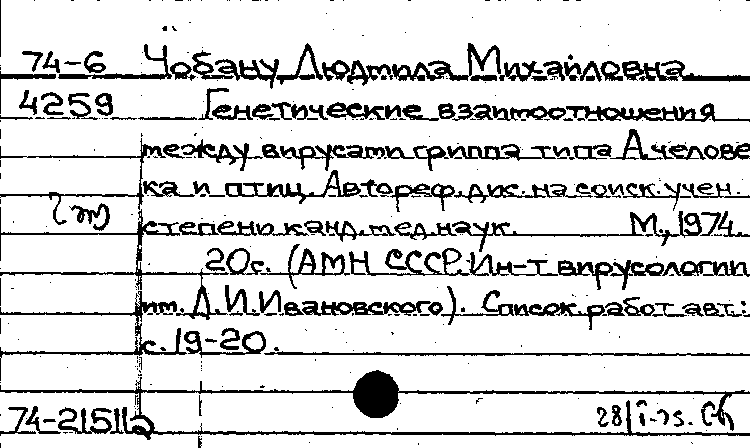 74-6 Чобану, Людмила Михайловна.
4259 Генетические взаимоотношения
между вирусами гриппа типа А челове
ка и птиц. Автореф. дис. на соиск. учен.
степени канд. мед. наук. М., 1974.
20 с. (АМН СССР. Ин-т вирусологии
им. Д.И.Ивановского). Список работ авт.:
с. 19-20.
74-21511